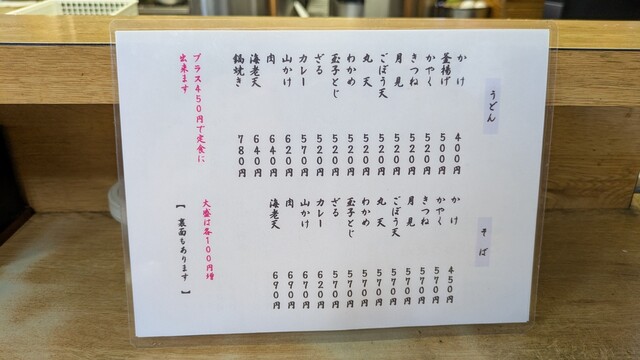 うどん
かけ 400円
釜揚げ 500円
かやく 520円
きつね 520円
月見 520円
ごぼう天 520円
丸天 520円
わかめ 520円
玉子とじ 520円
ざる 520円
カレー 570円
山かけ 620円
肉 640円
海老天 640円
鍋焼き 780円
プラス450円で定食に
出来ます
そば
かけ 450円
かやく 570円
きつね 570円
月見 570円
ごぼう天 570円
丸天 570円
わかめ 570円
玉子とじ 570円
ざる 570円
カレー 620円
山かけ 670円
肉 670円
海老天 690円
大盛は各100円増
【裏面もあります】